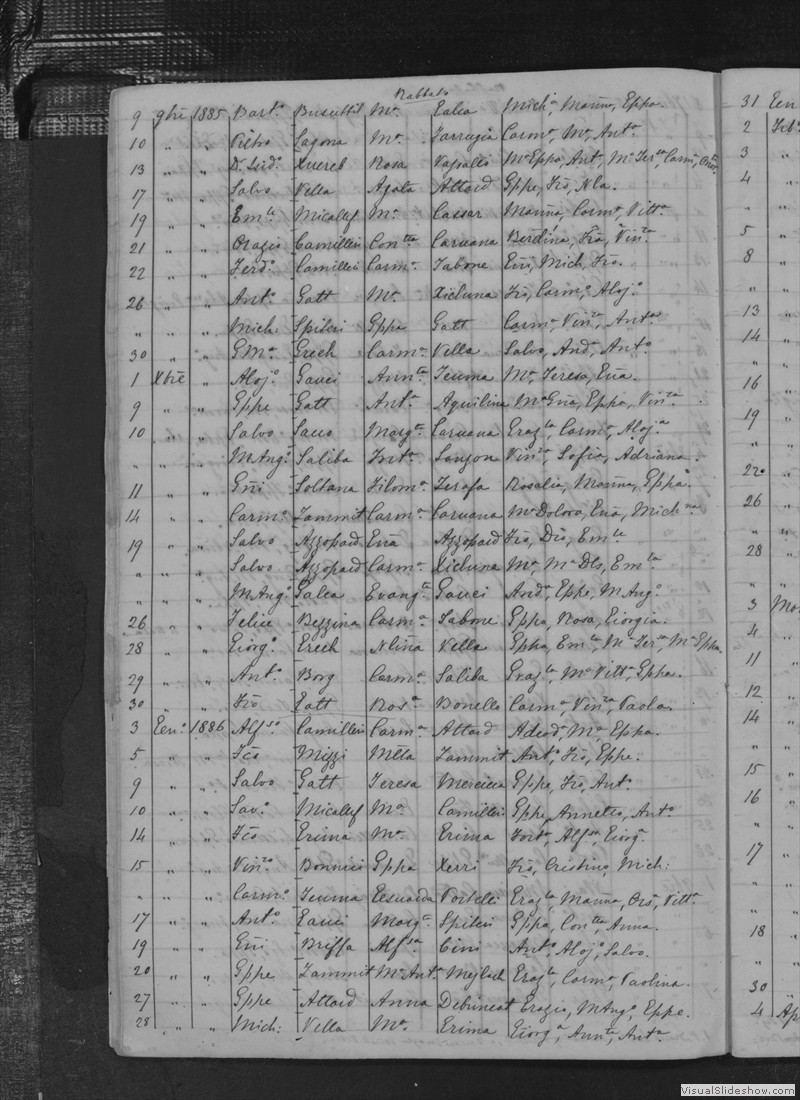 Rabbato
9 9bre 1885 Bart.o Busuttil M.a Galea Mich.a, Mauña, Eppa.
10 „ „ Pietro Lagona M.a Farrugia Carm.a, M.a, Ant.a
13 „ „ Xuereb Rosa Vassallo M.a Eppa, Ant.a, M.a Ter.sa, Carm.a
17 „ „ Salvo Vella Agata Attard Gppe, Frõ, Nla.
19 „ „ Em.le Micallef M.a Cassar Mauña, Carm.a, Vitt.a
21 „ „ Orazio Camilleri Con.tta Caruana Berdina, Frõ, Vin.ta
22 „ „ Ferd.o Camilleri Carm.a Tabone Eñi, Mich, Frõ.
26 „ „ Ant.o Gatt M.a Xicluna Frõ, Carm.o, Aloj.o
„ „ „ Mich: Spiteri Gppa Gatt Carm.a, Vin.ta, Ant.a
30 „ „ G.M.a Grech Carm.a Vella Salvo, And.a, Ant.o
1 Xbre „ Aloj.o Gauci Ann.ta Zeuma M.a, Teresa, Eña.
9 „ „ Gppe Gatt Ant.a Aquilina M.a Gña, Eppa, Vin.ta
10 „ „ Salvo Sacco Marg.ta Caruana Graz.la, Carm.a, Aloj.a
„ „ „ M.Ang.o Saliba Fort.a Vin.ta, Sofia, Adriana.
11 „ „ Gñi Soltana Filom.a Zerafa Rosalia, Mauña, Eppa
14 „ „ Carm.o Zammit Carm.a Caruana M.a Dolora, Eña, Mich.na
19 „ „ Salvo Azzopard Eña Azzopard Frõ, Dio, Em.le
„ „ „ Salvo Azzopard Carm.a Xicluna M.a, M.a Dls, Em.la
„ „ „ M.Ang.o Galea Evang.ta Gauci And.a, Eppe, M.Ang.o
26 „ „ Felice Bezzina Carm.a Tabone Eppa, Rosa, Giorgia.
28 „ „ Giorg.o Grech Nliña Vella Eppa, Em.la, M.a Ter.sa, M.a Eppa
29 „ „ Ant.o Borg Carm.a Saliba Graz.la, M.a Vitt.a, Gppa.
30 „ „ Frõ Gatt Ros.a Bonello Carm.a, Vin.ta, Paola.
3 Gen.o 1886 Alf.so Camilleri Carm.a Attard Adeod.a, M.a, Eppa.
5 „ „ Fcõ Mizzi Mlla Zammit Ant.o, Frõ, Eppe.
9 „ „ Salvo Gatt Teresa Mercieca Gppe, Frõ, Ant.o
10 „ „ Sav.o Micallef M.a Camilleri Gppe, Annetto, Ant.o
14 „ „ Fcõ Grima M.a Grima Fort.a, Alf.sa, Giorg.a
15 „ „ Vin.zo Bonnici Gppa Xerri Frõ, Cristina, Mich:
„ „ „ Carm.o Zeuma Portelli Graz.la, Mauña, Vitt.a
17 „ „ Ant.o Gauci Marg.ta Spiteri Gppa, Con.tta, Anna.
19 „ „ Gñi Briffa Alf.sa Cini Ant.o, Aloj.o, Salvo.
20 „ „ Gppe Zammit M.a Ant.a Mejlach Graz.la, Carm.a, Paolina.
27 „ „ Gppe Attard Anna Debrincat Grazia, M.Ang.o, Eppe.
28 „ „ Mich: Vella M.a Grima Giorg.a, Ann.ta, Ant.a
31 Gen
2 Feb
3 „
4 „
„ „
5 „
8 „
„ „
13 „
14 „
16 „
19 „
„ „
22 „
26 „
„ „
28 „
„ „
3 Mar
4 „
11 „
12 „
14 „
„ „
15 „
16 „
„ „
17 „
„ „
„ „
18 „
„ „
30 „
4 Ap
VisualSlideshow.com